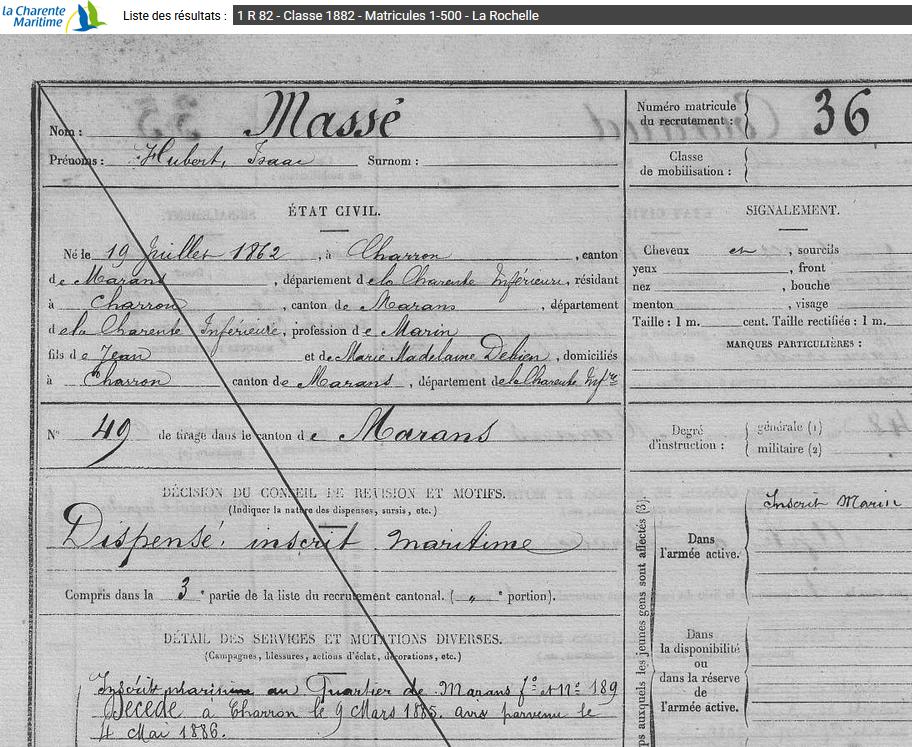 la Charente Maritime Liste des résultats : 1 R 82 - Classe 1882 - Matricules 1-500 - La Rochelle
Nom : Massé
Prénoms : Hubert, Isaac Surnom :
Numéro matricule du recrutement : 36
Classe de mobilisation :
ÉTAT CIVIL.
Né le 19 Juillet 1862, à Charron, canton
de Marans, département de la Charente Inférieure, résidant
à Charron, canton de Marans, département
de la Charente Inférieure, profession de Marin
fils de Jean et de Marie Madelaine Debien, domiciliés
à Charron canton de Marans, département de la Charente Infre
SIGNALEMENT.
Cheveux et , sourcils
yeux , front
nez , bouche
menton , visage
Taille : 1 m. cent. Taille rectifiée : 1 m.
MARQUES PARTICULIÈRES :
N° 49 de tirage dans le canton de Marans
Degré d'instruction : générale (1)
militaire (2)
DÉCISION DU CONSEIL DE RÉVISION ET MOTIFS.
(Indiquer la nature des dispenses, sursis, etc.)
Dispensé : inscrit maritime
Compris dans la 3e partie de la liste du recrutement cantonal. ( „ e portion).
DÉTAIL DES SERVICES ET MUTATIONS DIVERSES.
(Campagnes, blessures, actions d'éclat, décorations, etc.)
Inscrit maritime au Quartier de Marans fo et No 189
Décédé à Charron le 9 Mars 1885. avis parvenu le
4 Mai 1886.
ps auxquels les jeunes gens sont affectés (3).
Dans l'armée active.
Inscrit Marin
Dans la disponibilité
ou
dans la réserve
de
l'armée active.